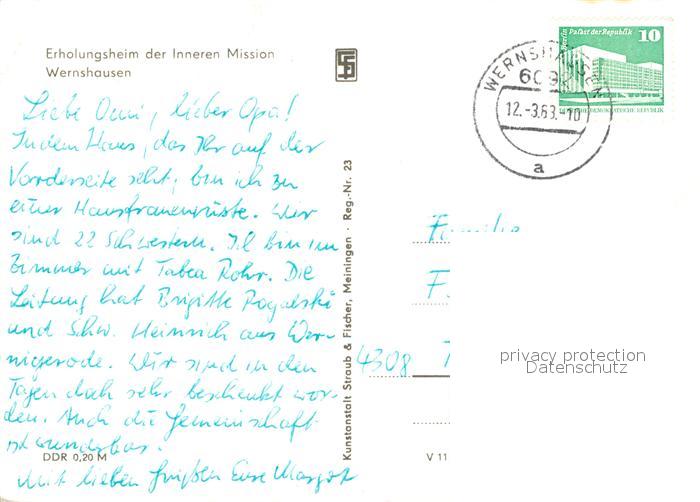 Erholungsheim der Inneren Mission
Wernshausen
Liebe Omi, lieber Opa!
In dem Haus, das Ihr auf der
Vorderseite seht, bin ich zu
einer Hausfrauenrüste. Wir
sind 22 Schwestern. Ich bin im
Zimmer mit Tabea Rohr. Die
Leitung hat Brigitte Rogalski
und Schw. Heinrich aus Wer-
nigerode. Wir sind in den
Tagen doch sehr beschenkt wor-
den. Auch die Gemeinschaft
ist wunderbar.
Mit lieben Grüßen Eure Margot
DDR 0,20 M
Kunstanstalt Straub & Fischer, Meiningen · Reg.-Nr. 23
V 11
Berlin Palast der Republik 10
DEUTSCHE DEMOKRATISCHE REPUBLIK
WERNSHAUSEN
12.-3.83.-10
a
Familie
F.
4308
privacy protection
Datenschutz